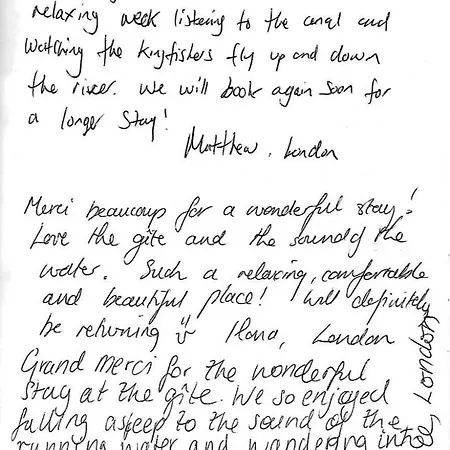 relaxing week listening to the canal and
watching the kingfishers fly up and down
the river. We will book again soon for
a longer stay!
Matthew, London
Merci beaucoup for a wonderful stay!
Love the gîte and the sound of the
water. Such a relaxing, comfortable
and beautiful place! Will definitely
be returning Ilona, London
Grand Merci for the wonderful
stay at the gîte. We so enjoyed
falling asleep to the sound of the
running water and wandering into
London